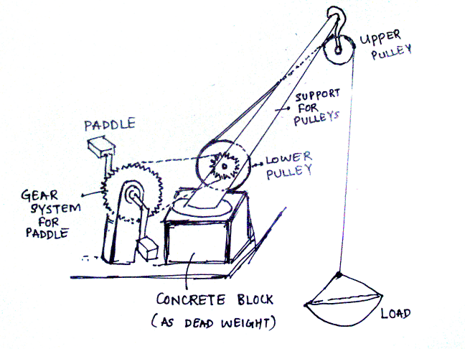 UPPER
PULLEY
SUPPORT
FOR
PULLEYS
PADDLE
LOWER
PULLEY
GEAR
SYSTEM
FOR
PADDLE
CONCRETE BLOCK
(AS DEAD WEIGHT)
LOAD